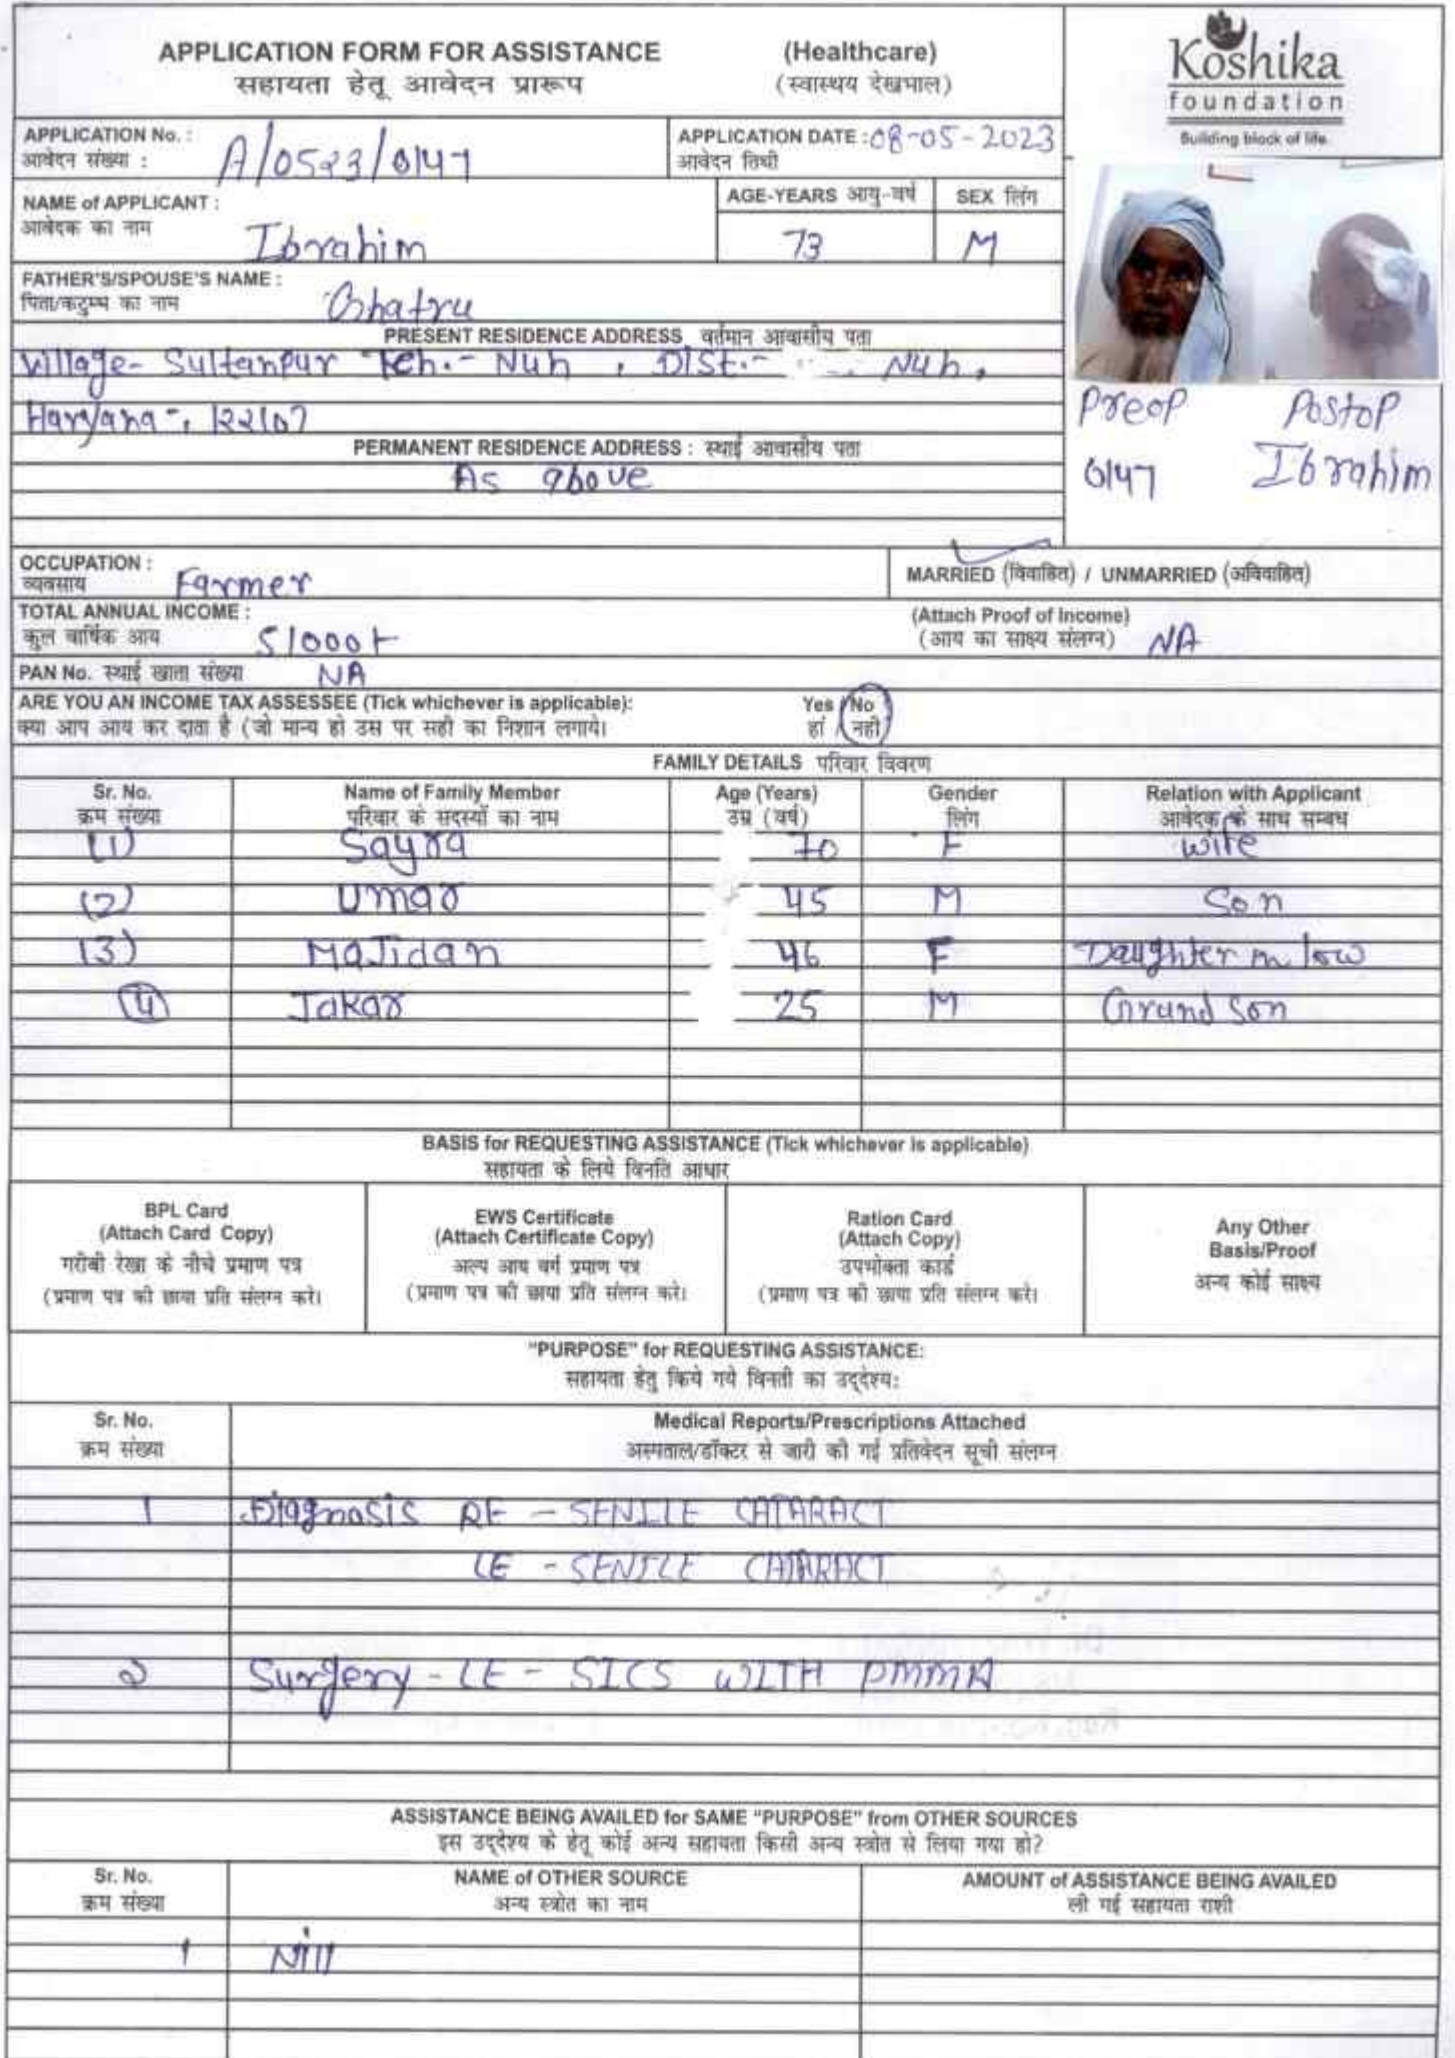 APPLICATION FORM FOR ASSISTANCE (Healthcare)
सहायता हेतू आवेदन प्रारूप (स्वास्थय देखभाल)
Koshika
foundation
Building block of life.
APPLICATION No. : A/0523/0147
आवेदन संख्या :
APPLICATION DATE : 08-05-2023
आवेदन तिथी
NAME of APPLICANT : Ibrahim
आवेदक का नाम
AGE-YEARS आयु-वर्ष SEX लिंग
73 M
FATHER'S/SPOUSE'S NAME :
पिता/कटुम्ब का नाम
PRESENT RESIDENCE ADDRESS वर्तमान आवासीय पता
Village- Sultanpur Teh.- Nuh , Dist.- Nuh,
Haryana-, 122107
Preop Postop
0147 Ibrahim
PERMANENT RESIDENCE ADDRESS : स्थाई आवासीय पता
As above
OCCUPATION : Farmer
व्यवसाय
MARRIED (विवाहित) / UNMARRIED (अविवाहित)
TOTAL ANNUAL INCOME : 51000
कुल वार्षिक आय
(Attach Proof of Income) NA
(आय का साक्ष्य संलग्न)
PAN No. स्थाई खाता संख्या NA
ARE YOU AN INCOME TAX ASSESSEE (Tick whichever is applicable): Yes / No
क्या आप आय कर दाता है (जो मान्य हो उस पर सही का निशान लगाये। हां / नही
FAMILY DETAILS परिवार विवरण
Sr. No. Name of Family Member Age (Years) Gender Relation with Applicant
क्रम संख्या परिवार के सदस्यों का नाम उम्र (वर्ष) लिंग आवेदक के साथ सम्बध
(1) Sayra 70 F wife
(2) Umar 45 M Son
(3) Majidan 46 F Daughter in low
(4) Jakar 25 M Grund Son
BASIS for REQUESTING ASSISTANCE (Tick whichever is applicable)
सहायता के लिये विनति आधार
BPL Card
(Attach Card Copy)
गरीबी रेखा के नीचे प्रमाण पत्र
(प्रमाण पत्र की छाया प्रति संलग्न करे।
EWS Certificate
(Attach Certificate Copy)
अल्प आय वर्ग प्रमाण पत्र
(प्रमाण पत्र की छाया प्रति संलग्न करे।
Ration Card
(Attach Copy)
उपभोक्ता कार्ड
(प्रमाण पत्र की छाया प्रति संलग्न करे।
Any Other
Basis/Proof
अन्य कोई साक्ष्य
"PURPOSE" for REQUESTING ASSISTANCE:
सहायता हेतु किये गये विनती का उद्देश्य:
Sr. No. Medical Reports/Prescriptions Attached
क्रम संख्या अस्पताल/डॉक्टर से जारी की गई प्रतिवेदन सूची संलग्न
1 Diagnosis RE - SENILE CATARACT
LE - SENILE CATARACT
2 Surgery - LE - SICS WITH PMMA
ASSISTANCE BEING AVAILED for SAME "PURPOSE" from OTHER SOURCES
इस उद्देश्य के हेतू कोई अन्य सहायता किसी अन्य स्त्रोत से लिया गया हो?
Sr. No. NAME of OTHER SOURCE AMOUNT of ASSISTANCE BEING AVAILED
क्रम संख्या अन्य स्त्रोत का नाम ली गई सहायता राशी
1 Nill